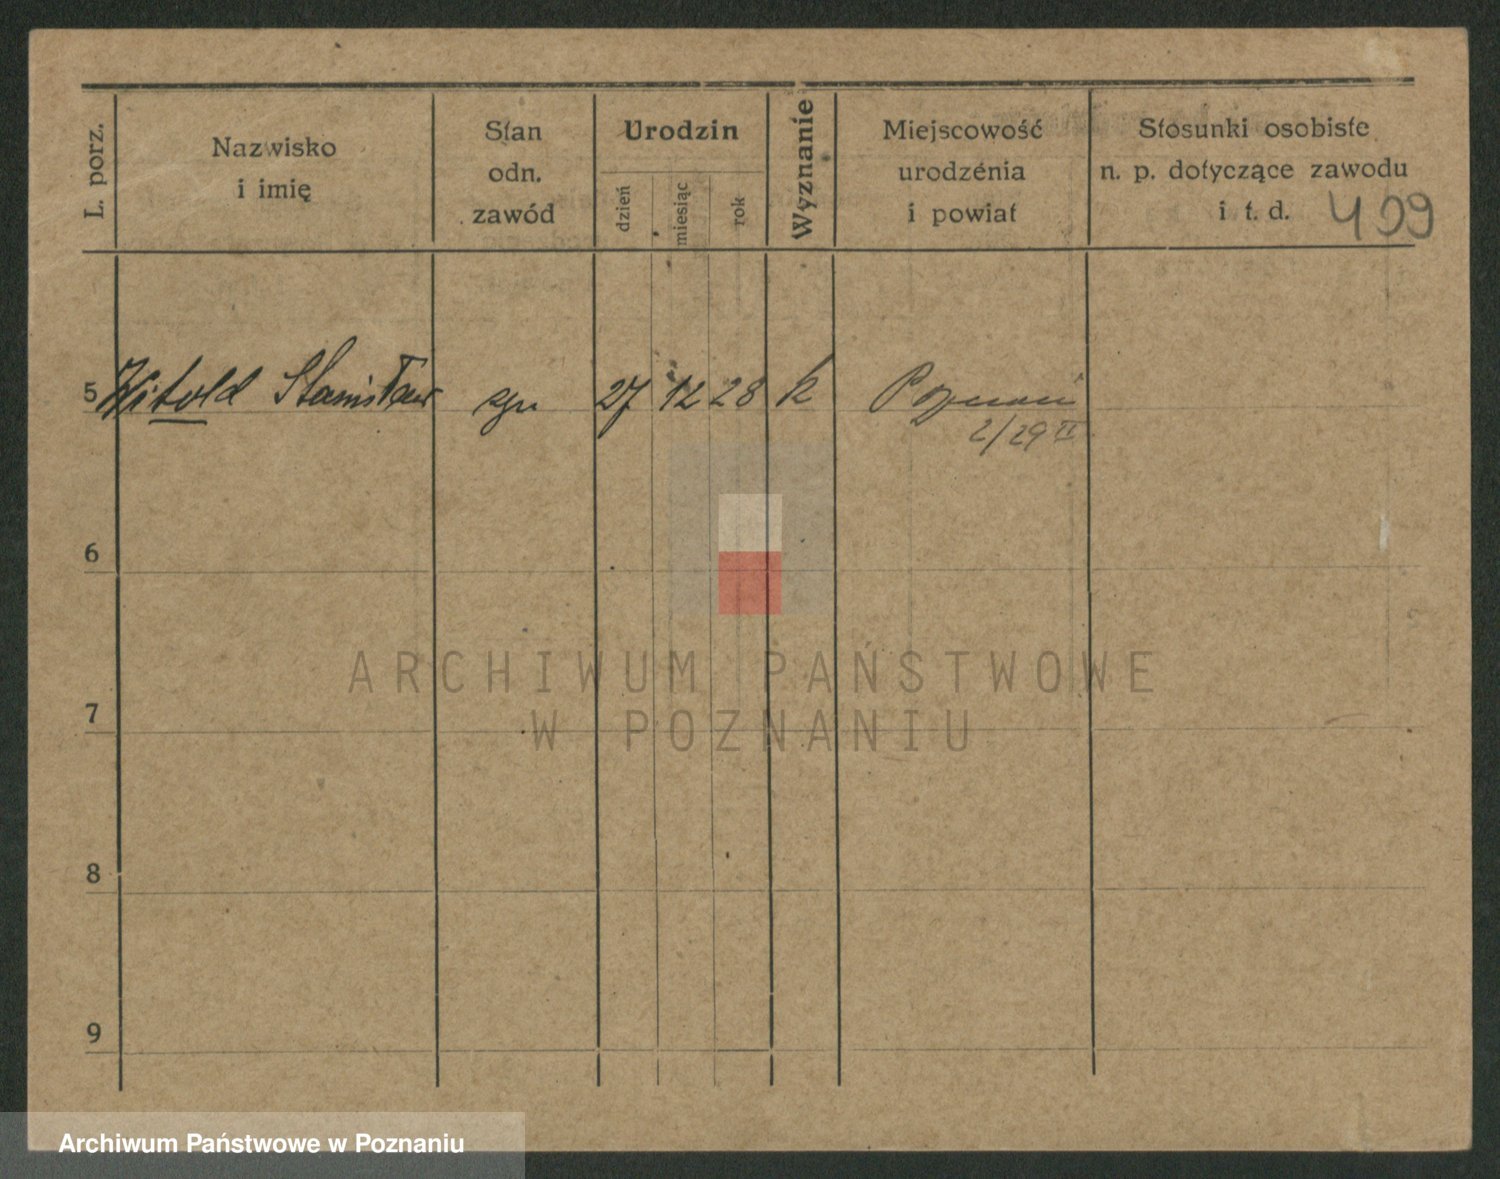 L. porz.
Nazwisko
i imię
Stan
odn.
zawód
Urodzin
dzień
miesiąc
rok
Wyznanie
Miejscowość
urodzenia
i powiat
Stosunki osobiste
n. p. dotyczące zawodu
i t. d.
409
5 Witold Stanisław syn 27 12 28 k Poznań
2/29 II
6
7
8
9
ARCHIWUM PAŃSTWOWE
W POZNANIU
Archiwum Państwowe w Poznaniu